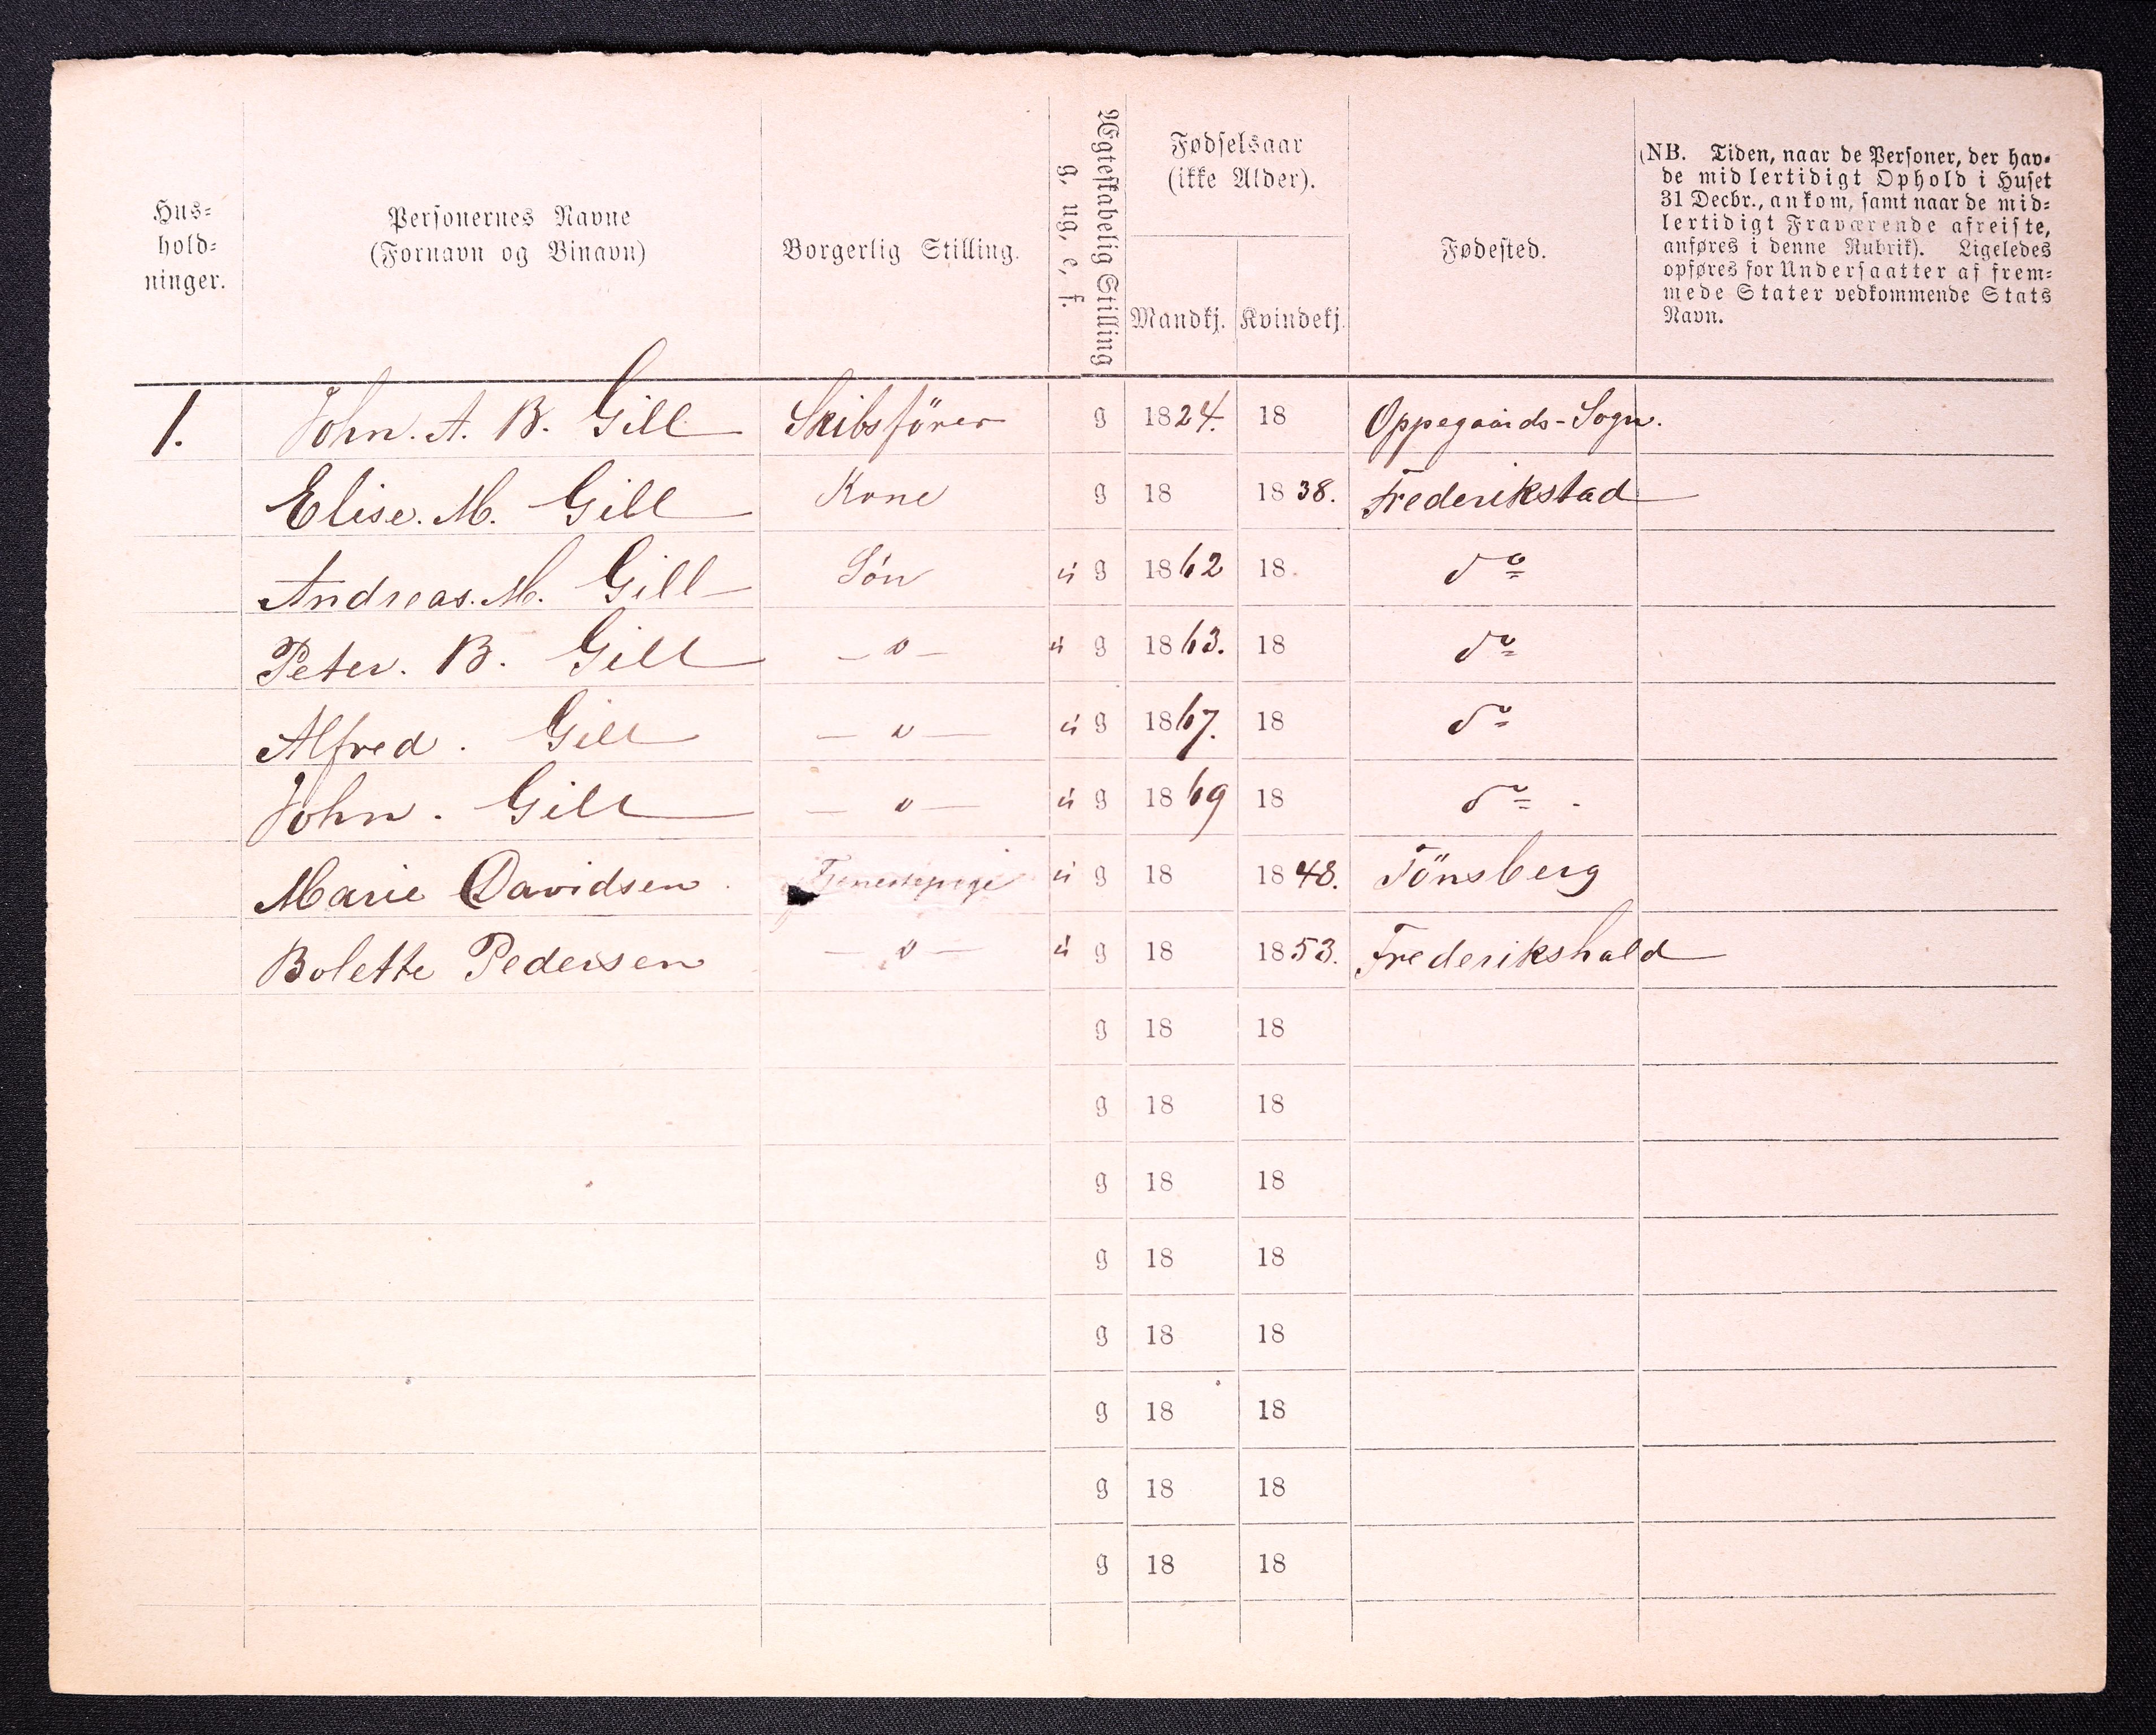 Hus-
hold-
ninger.
Personernes Navne
(Fornavn og Binavn)
Borgerlig Stilling.
Ægteskabelig Stilling
g, ug, e, f.
Fødselsaar
(ikke Alder).
Mandkj. Kvindekj.
Fødested.
(NB. Tiden, naar de Personer, der hav-
de midlertidigt Ophold i Huset
31 Decbr., ankom, samt naar de mid-
lertidigt Fraværende afreiste,
anføres i denne Rubrik). Ligeledes
opføres for Undersaatter af frem-
mede Stater vedkommende Stats
Navn.
1. John. A. B. Gill Skibsförer g 1824. 18 Oppegaards-Sogn.
Elise. M. Gill Kone g 18 1838. Frederikstad
Andreas. M. Gill Sön u g 1862 18 do
Peter. B. Gill - " - u g 1863. 18 do
Alfred. Gill - " - u g 1867. 18 do
John. Gill - " - u g 1869 18 do -
Marie Davidsen Tjenestepige u g 18 1848. Tönsberg
Bolette Pedersen - " - u g 18 1853. Frederikshald
g 18 18
g 18 18
g 18 18
g 18 18
g 18 18
g 18 18
g 18 18
g 18 18